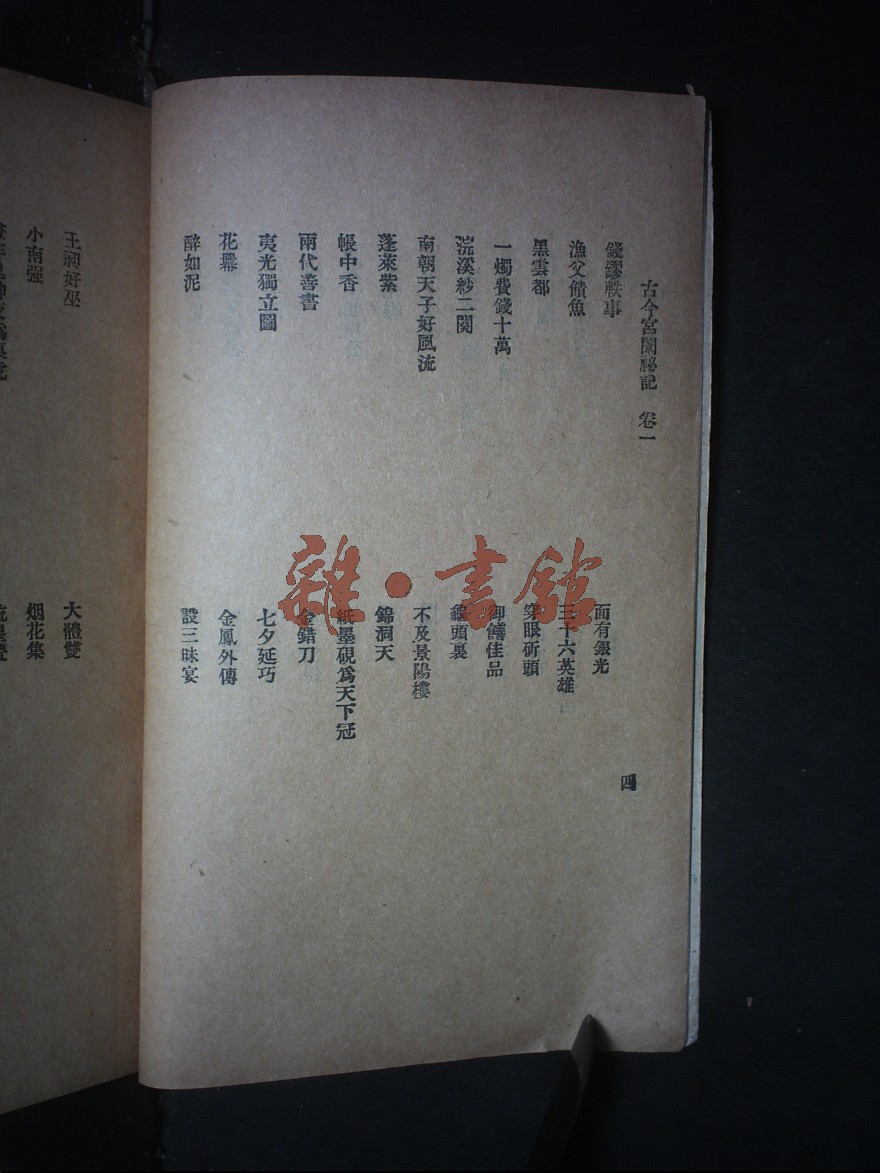 古今宮闈祕記　卷一
四
錢鏐軼事
面有銀光
漁父饋魚
三十六英雄
黑雲都
穿眼斫頭
一燭費錢十萬
御饍佳品
浣溪紗二闋
龜頭裏
南朝天子好風流
不及景陽樓
蓬萊紫
錦洞天
帳中香
紙墨硯爲天下冠
兩代善書
金錯刀
夷光獨立圖
七夕延巧
花㡘
金鳳外傳
醉如泥
設三昧宴
王昶好巫
大體雙
小南强
烟花集
雜·書館